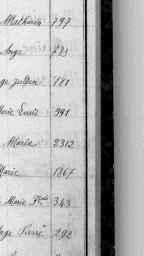 Mathurin 797
Ange 221
Ange Julien 121
Marie Louis 991
Maria 2312
Marie 1867
Marie Fse 343
Ange Pierre 292